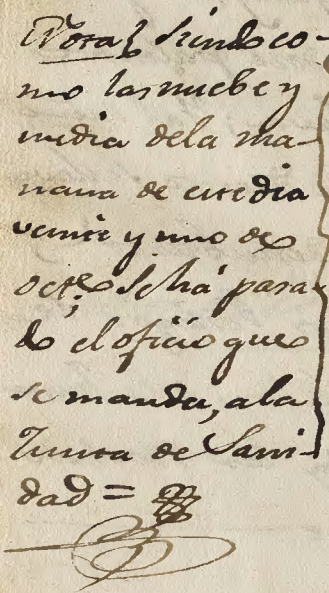 Nota) Siendo co-
mo las nuebe y
media dela ma-
nana de este dia
veinte y uno de
octe, se ha pasa-
do el oficio que
se manda, ala
Junta de Sani-
dad =